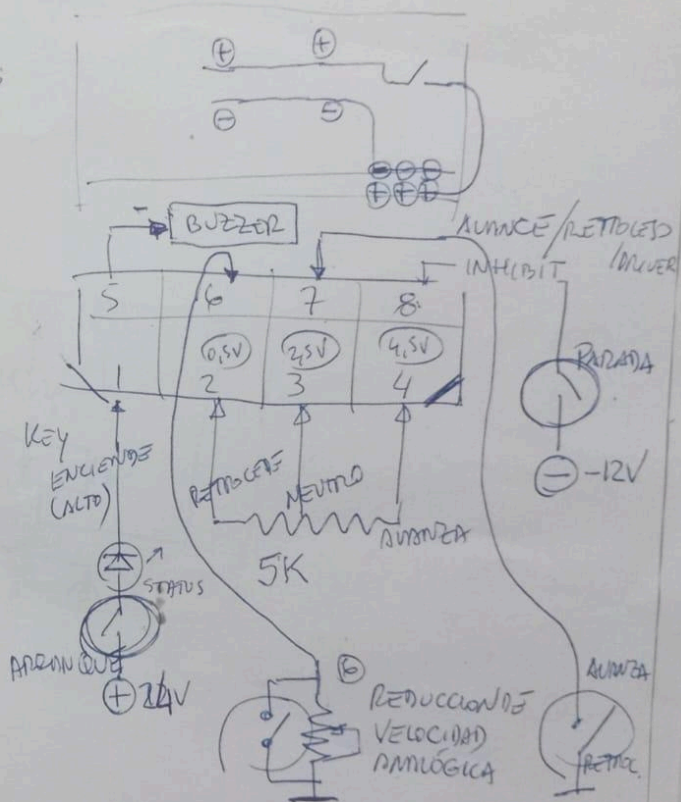 + +
- -
- - -
+ + +
- BUZZER
AVANCE/RETROCESO
/DRIVER
INHIBIT
5 6 7 8
0,5V 2,5V 4,5V
1 2 3 4
PARADA
- -12V
KEY
ENCIENDE
(ALTO)
RETROCEDE
NEUTRO
AVANZA
5K
STATUS
ARRANQUE
+ 24V
6
REDUCCION DE
VELOCIDAD
ANALÓGICA
AVANZA
RETROC.